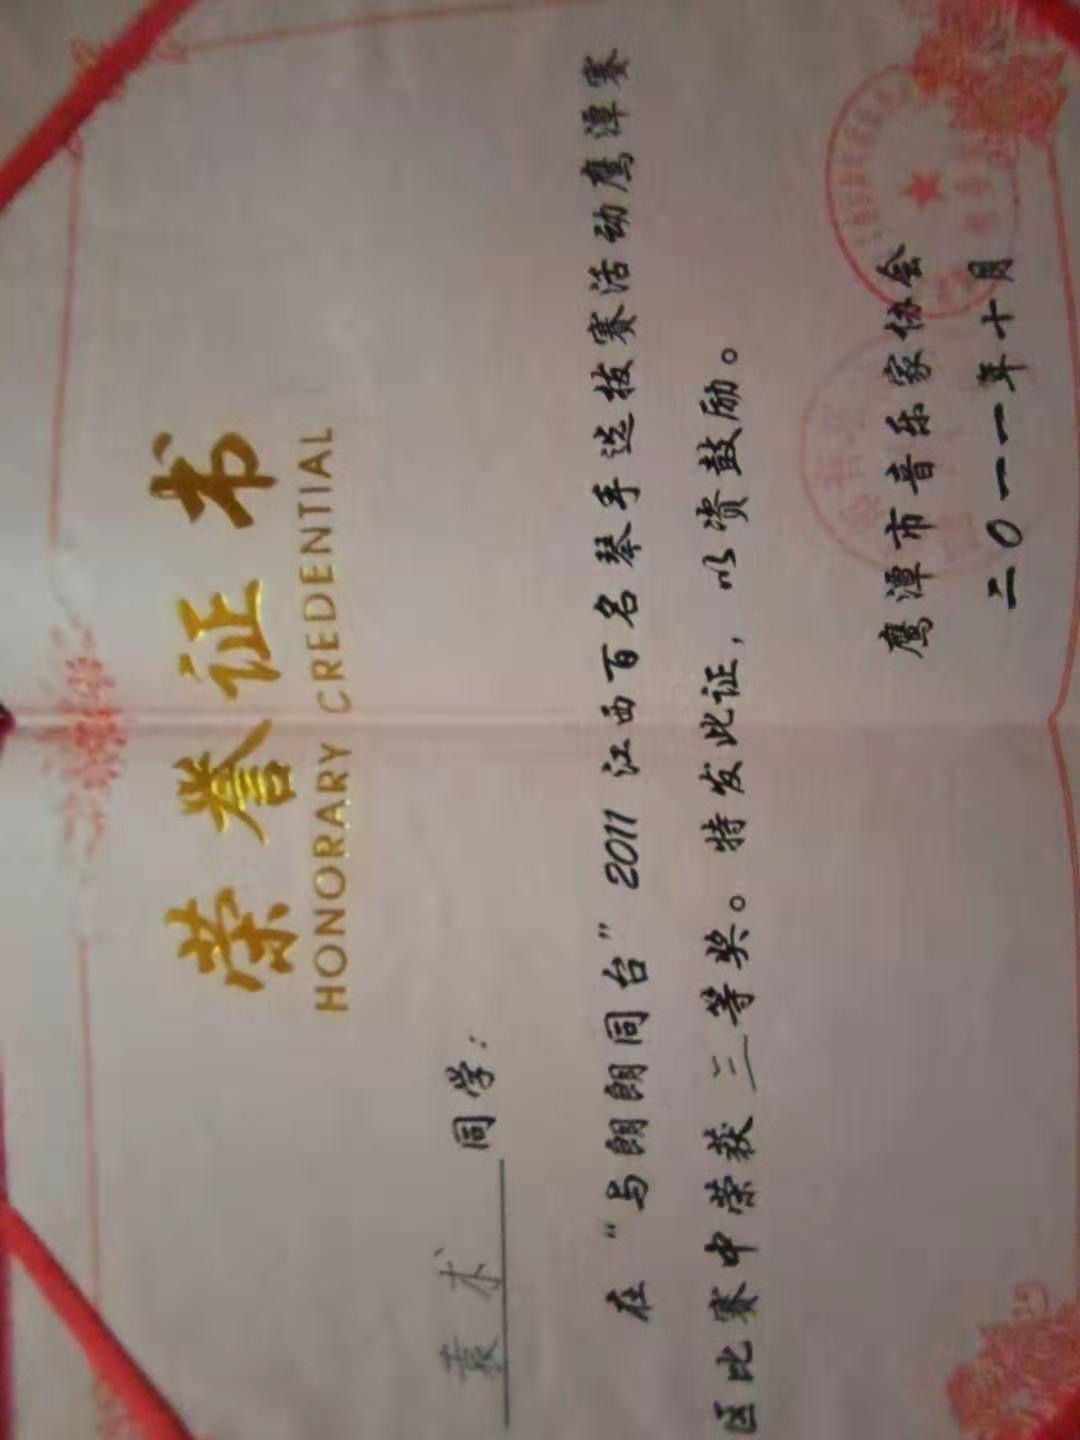 荣誉证书
HONORARY CREDENTIAL
同学：
在“与朗朗同台”2011江西百名琴手选拔赛活动鹰潭赛
区比赛中荣获三等奖。特发此证，以资鼓励。
鹰潭市音乐家协会
二0一一年十月